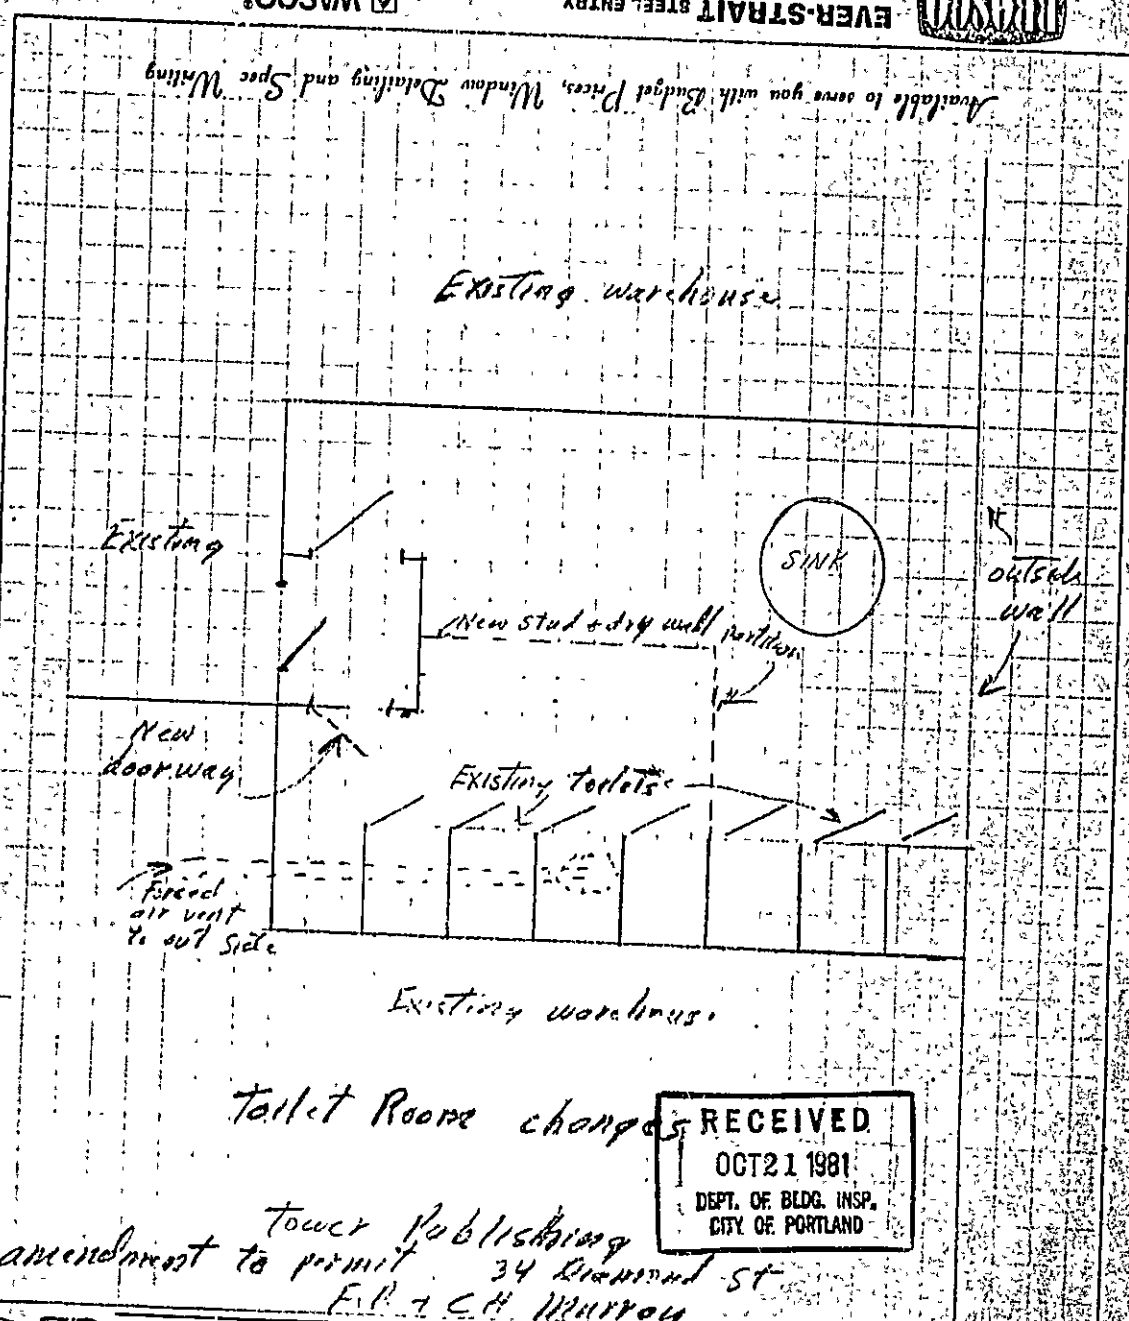 WASCO®
EVER-STRAIT STEEL ENTRY
Available to serve you with Budget Prices, Window Detailing and Spec Writing
Existing warehouse
Existing
SINK
outside
wall
New stud + dry wall partition
New
doorway
Existing toilets
Forced
air vent
to out side
Existing warehous.
Toilet Room changes
RECEIVED
OCT 21 1981
DEPT. OF BLDG. INSP.
CITY OF PORTLAND
Tower Publishing
amendment to permit 34 Diamond St
F.P. + C H Murray